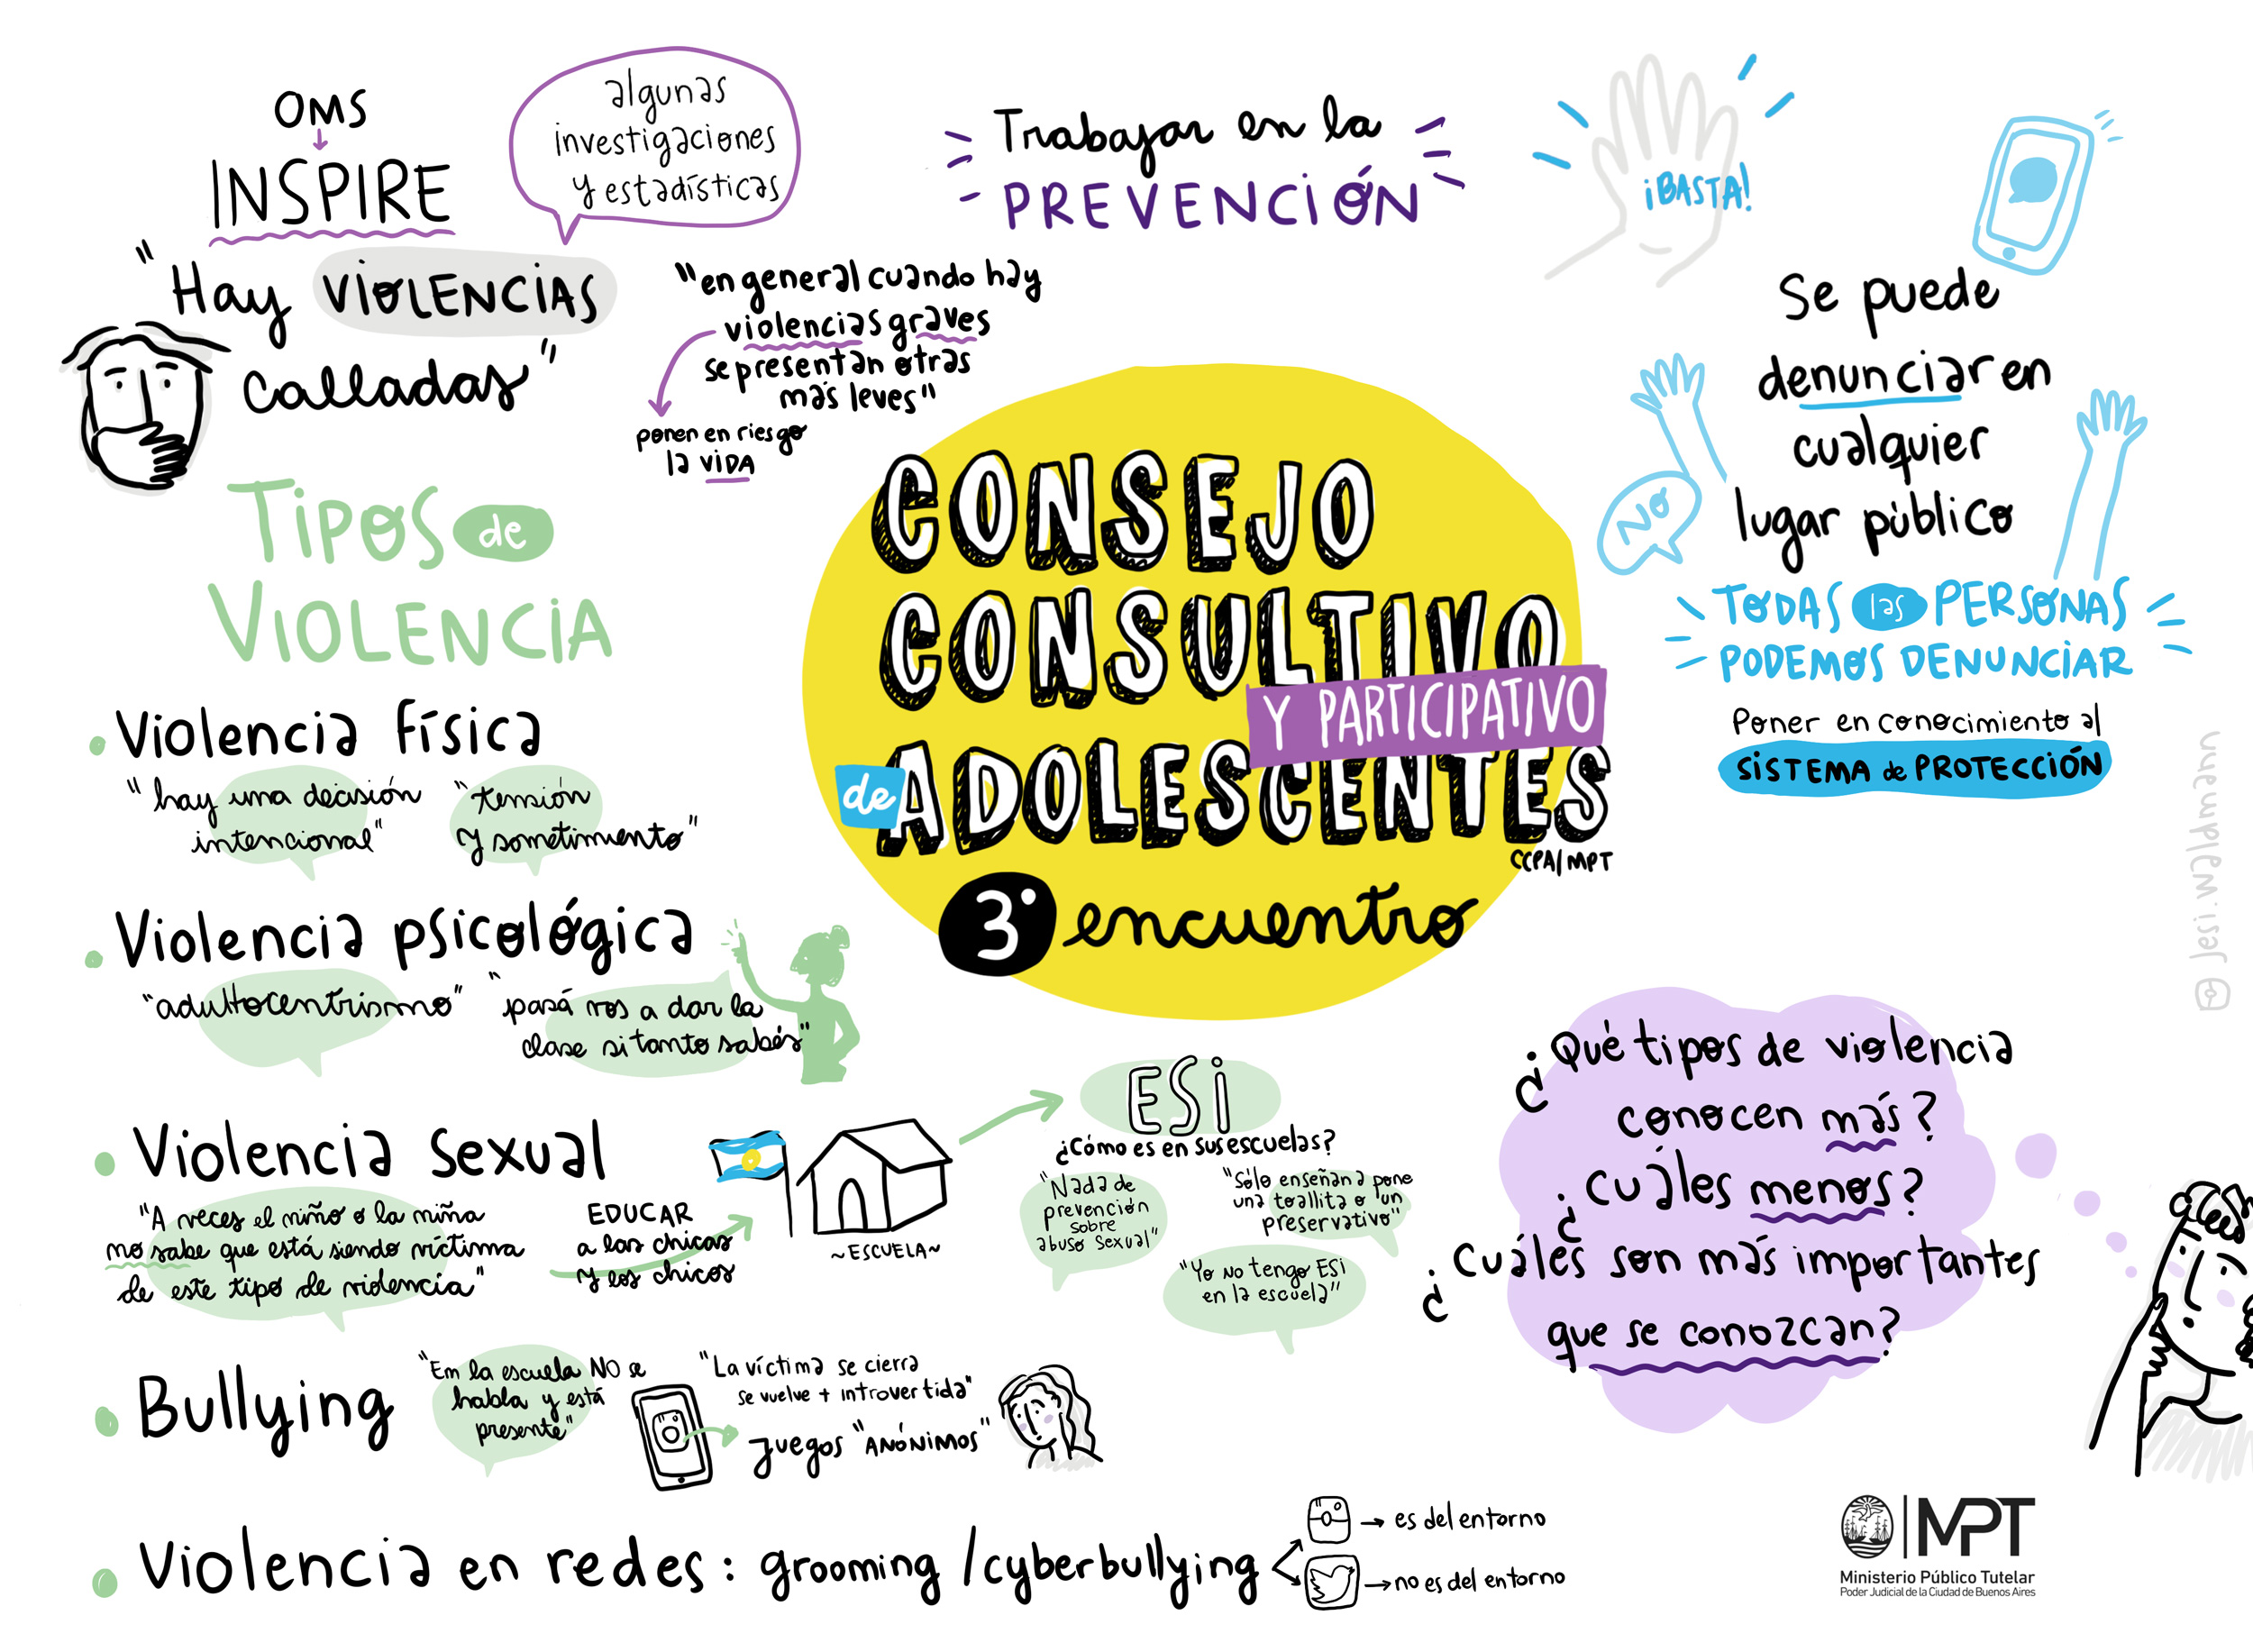 OMS
INSPIRE
algunas
investigaciones
y estadísticas
"Hay VIOLENCIAS
calladas"
"en general cuando hay
violencias graves
se presentan otras
más leves"
ponen en riesgo
la VIDA
Trabajar en la
PREVENCIÓN
¡BASTA!
Se puede
denunciar en
cualquier
lugar público
NO
TODAS las PERSONAS
PODEMOS DENUNCIAR
Poner en conocimiento al
SISTEMA de PROTECCIÓN
CONSEJO
CONSULTIVO
Y PARTICIPATIVO
de ADOLESCENTES
CCPA/MPT
3° encuentro
TIPOS de
VIOLENCIA
Violencia física
"hay una decisión
intencional"
"tensión
y sometimiento"
Violencia psicológica
"adultocentrismo"
"pasá vos a dar la
clase si tanto sabés"
Violencia sexual
"A veces el niño o la niña
no sabe que está siendo víctima
de este tipo de violencia"
EDUCAR
a las chicas
y los chicos
~ESCUELA~
ESI
¿Cómo es en sus escuelas?
"Nada de
prevención
sobre
abuso sexual"
"Sólo enseñan a pone
una toallita o un
preservativo"
"Yo no tengo ESI
en la escuela"
Bullying
"En la escuela NO se
habla y está
presente"
"La víctima se cierra
se vuelve + introvertida"
Juegos "ANÓNIMOS"
Violencia en redes: grooming /cyberbullying
→ es del entorno
→ no es del entorno
¿Qué tipos de violencia
conocen más?
¿Cuáles menos?
¿Cuáles son más importantes
que se conozcan?
Jesi.waldmann
MPT
Ministerio Público Tutelar
Poder Judicial de la Ciudad de Buenos Aires